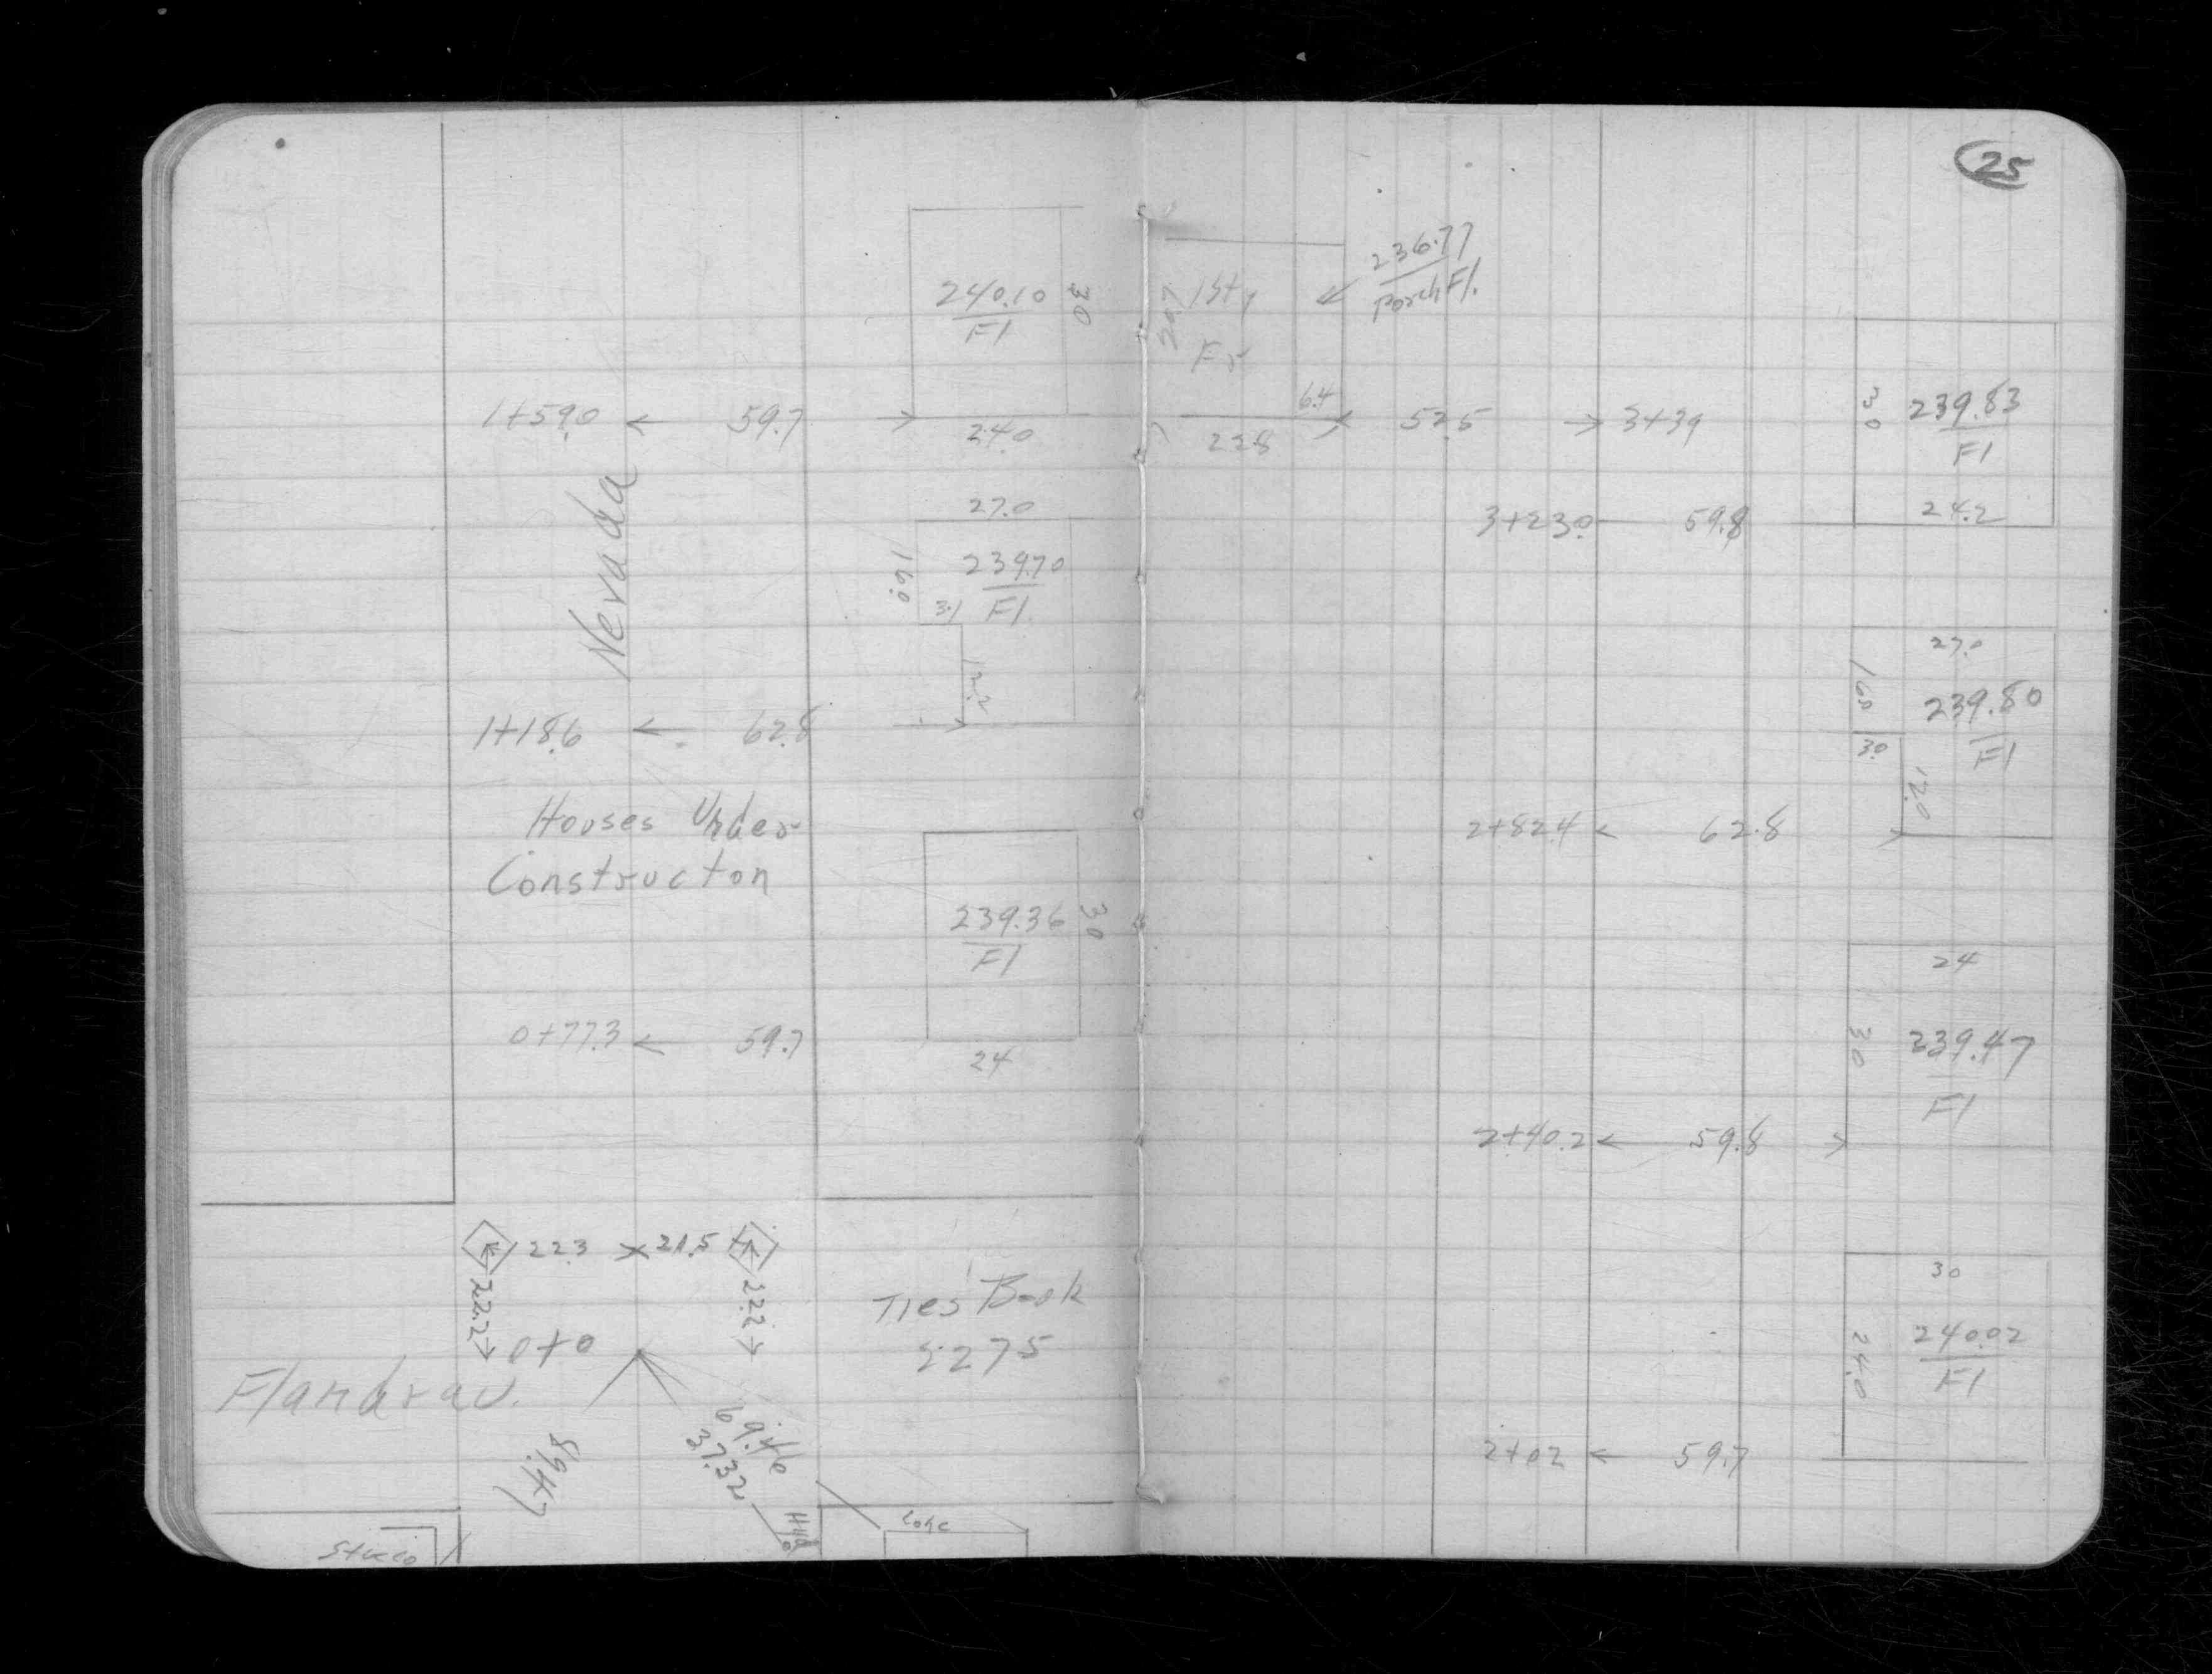 240.10
Fl
30
1+59.0
59.7
24.0
Nevada
27.0
16.0
239.70
3.1
Fl
12.2
1+18.6
62.8
Houses Under
Constructon
239.36
30
Fl
0+77.3
59.7
24
22.3
21.5
22.2
22.2
0+0
Ties Book
2275
Flandrau.
59.47
69.46
37.32
Hyd
Conc
Stucco
25
236.77
Porch Fl.
1 Sty
Fr
29.7
6.4
22.8
52.5
3+39
30
239.83
Fl
24.2
3+23.0
59.8
27.0
16.0
239.80
3.0
Fl
12.0
2+82.4
62.8
24
30
239.47
Fl
2+40.2
59.8
30
24.0
240.02
Fl
2+02
59.7